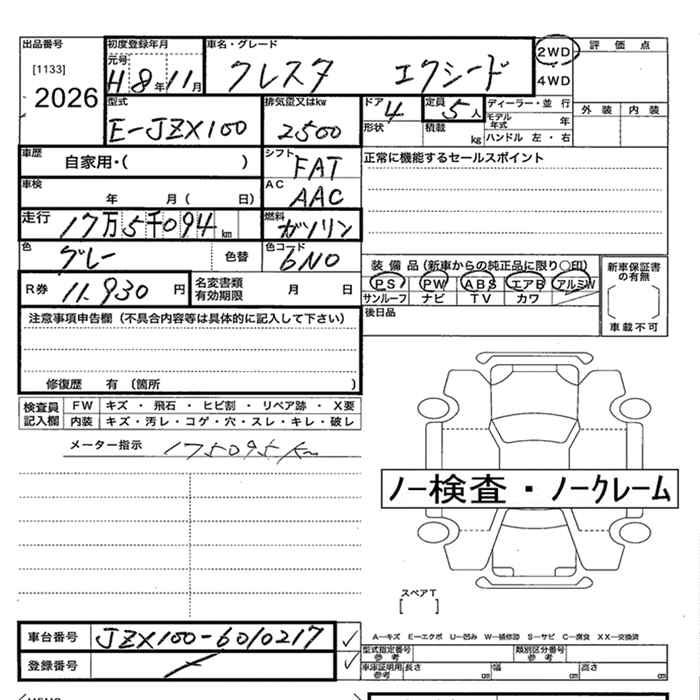 出品番号 初度登録年月 車名・グレード 評価点
[1133] 元号 H8年11月 クレスタ エクシード 2WD
2026 4WD 外装 内装
型式 E-JZX100 排気量又はkw 2500 ドア 4 定員 5人 ディーラー・並行
形状 積載 kg モデル年式 年
ハンドル 左・右
車歴 自家用・( ) シフト FAT 正常に機能するセールスポイント
車検 年 月( 日) AC AAC
走行 17万5千094km 燃料 ガソリン
色 グレー 色替 色コード 6N0
装備品(新車からの純正品に限り○印) 新車保証書の有無
R券 11,930円 名変書類有効期限 月 日 PS PW ABS エアB アルミW
サンルーフ ナビ TV カワ
後日品 車載不可
注意事項申告欄(不具合内容等は具体的に記入して下さい)
修復歴 有 (箇所 )
検査員 FW キズ・飛石・ヒビ割・リペア跡・X要
記入欄 内装 キズ・汚レ・コゲ・穴・スレ・キレ・破レ
メーター指示 175095km
ノー検査・ノークレーム
スペアT
[ ]
車台番号 JZX100-6010217 ✓
A―キズ E―エクボ U―凹み W―補修跡 S―サビ C―腐食 XX―交換済
登録番号 ✓ 型式指定番号 参考 類別区分番号 参考
車庫証明用 参考 長さ cm 幅 cm 高さ cm